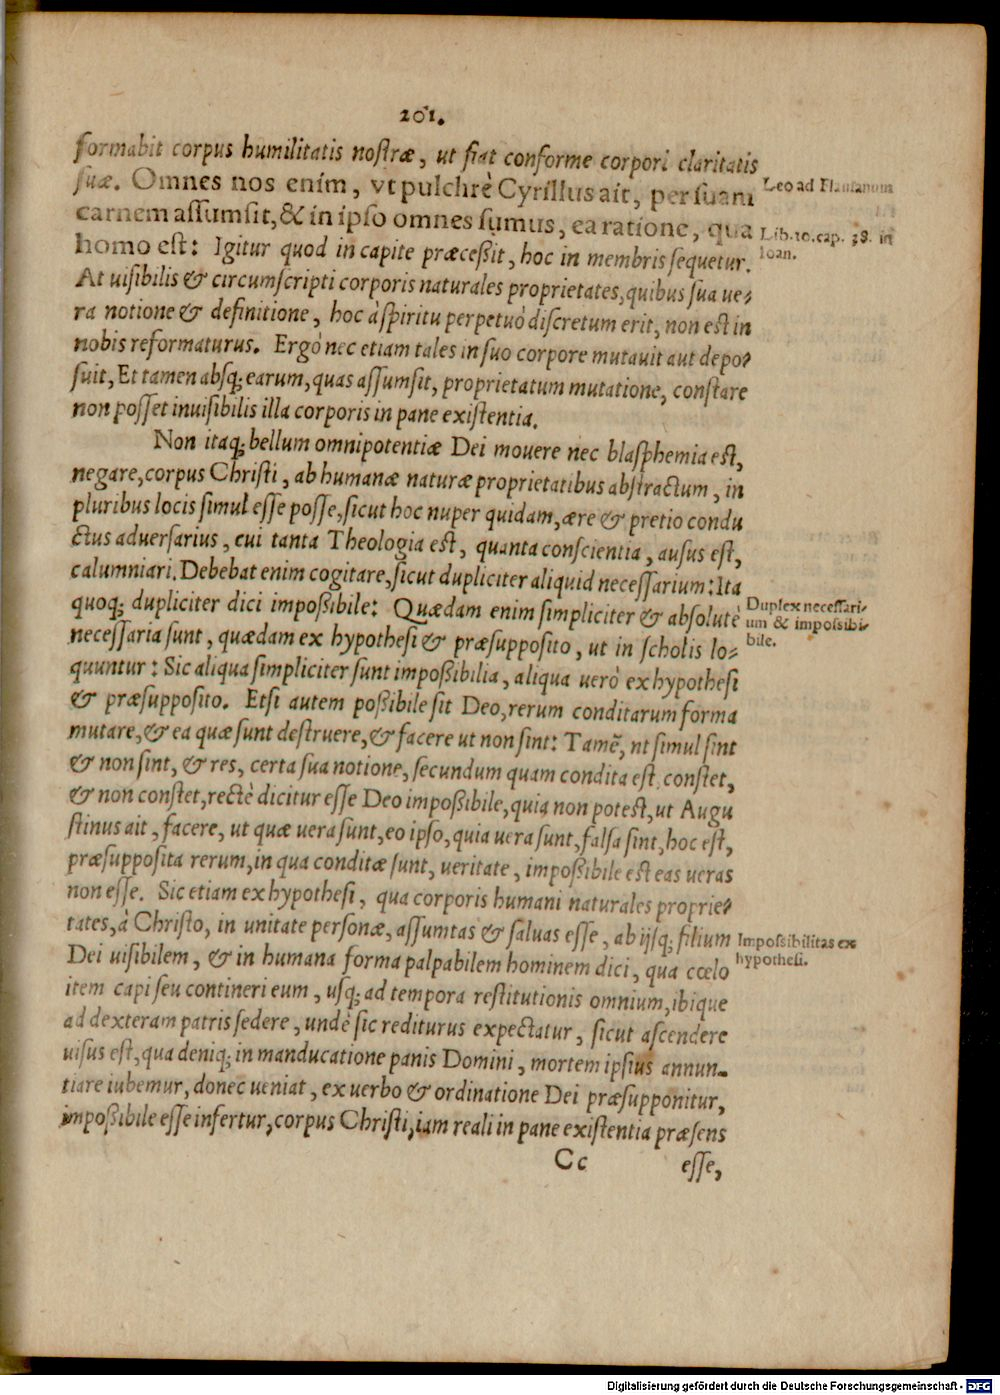 201.
formabit corpus humilitatis nostræ, ut fiat conforme corpori claritatis
suæ. Omnes nos enim, vt pulchrè Cyrillus ait, per suam
carnem assumsit, & in ipso omnes sumus, ea ratione, qua
homo est: Igitur quod in capite præceßit, hoc in membris sequetur.
At uisibilis & circumscripti corporis naturales proprietates, quibus sua ue⸗
ra notione & definitione, hoc à spiritu perpetuò discretum erit, non est in
nobis reformaturus. Ergo nec etiam tales in suo corpore mutauit aut depo⸗
suit, Et tamen absq; earum, quas assumsit, proprietatum mutatione, constare
non posset inuisibilis illa corporis in pane existentia.
Non itaq; bellum omnipotentiæ Dei mouere nec blasphemia est,
negare, corpus Christi, ab humanæ naturæ proprietatibus abstractum, in
pluribus locis simul esse posse, sicut hoc nuper quidam, ære & pretio condu
ctus aduersarius, cui tanta Theologia est, quanta conscientia, ausus est,
calumniari. Debebat enim cogitare, sicut dupliciter aliquid necessarium: Ita
quoq; dupliciter dici impoßibile: Quædam enim simpliciter & absolutè
necessaria sunt, quædam ex hypothesi & præsupposito, ut in scholis lo⸗
quuntur: Sic aliqua simpliciter sunt impoßibilia, aliqua uerò ex hypothesi
& præsupposito. Etsi autem poßibile sit Deo, rerum conditarum forma
mutare, & ea quæ sunt destruere, & facere ut non sint: Tamẽ, nt simul sint
& non sint, & res, certa sua notione, secundum quam condita est constet,
& non constet, rectè dicitur esse Deo impoßibile, quia non potest, ut Augu
stinus ait, facere, ut quæ uera sunt, eo ipso, quia uera sunt, falsa sint, hoc est,
præsupposita rerum, in qua conditæ sunt, ueritate, impoßibile est eas ueras
non esse. Sic etiam ex hypothesi, qua corporis humani naturales proprie⸗
tates, à Christo, in unitate personæ, assumtas & saluas esse, ab ijsq; filium
Dei uisibilem, & in humana forma palpabilem hominem dici, qua cœlo
item capi seu contineri eum, usq; ad tempora restitutionis omnium, ibique
ad dexteram patris sedere, undè sic rediturus expectatur, sicut ascendere
uisus est, qua deniq; in manducatione panis Domini, mortem ipsius annun⸗
tiare iubemur, donec ueniat, ex uerbo & ordinatione Dei præsupponitur,
impoßibile esse infertur, corpus Christi, iam reali in pane existentia præsens
Cc esse,
Leo ad Flauianum
Lib. 10. cap. 38. in
Ioan.
Duplex necessari⸗
um & impossibi⸗
bile.
Impossibilitas ex
hypothesi.
Digitalisierung gefördert durch die Deutsche Forschungsgemeinschaft - DFG